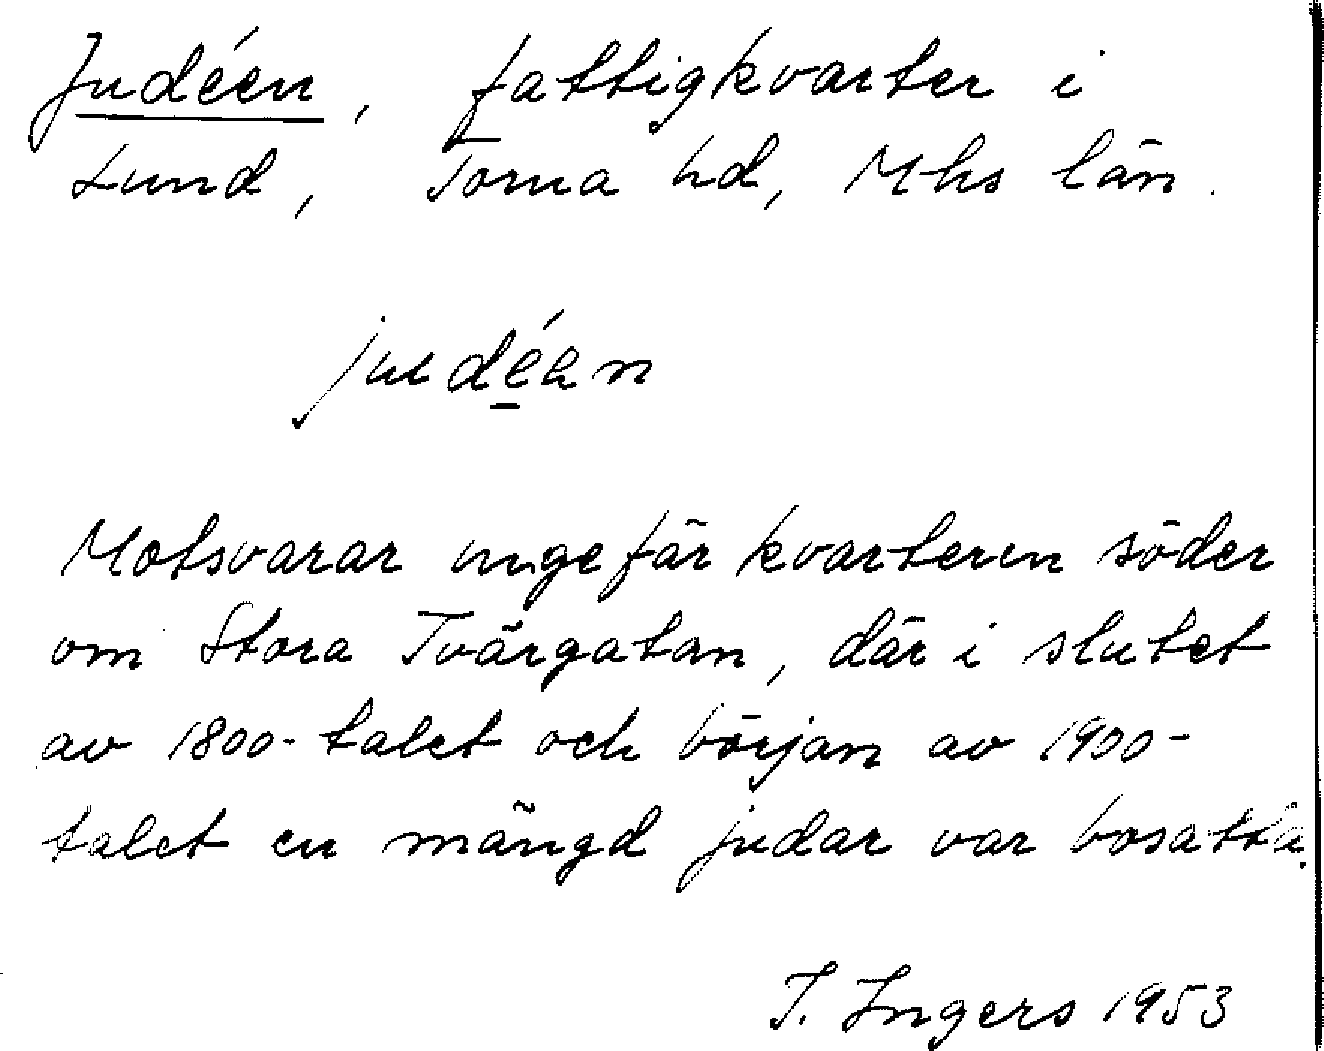 Judéen, fattigkvarter i
Lund, Torna hd, Mhs län.
judéan
Motsvarar ungefär kvarteren söder
om Stora Tvärgatan, där i slutet
av 1800-talet och början av 1900-
talet en mängd judar var bosatta.
I. Ingers 1953